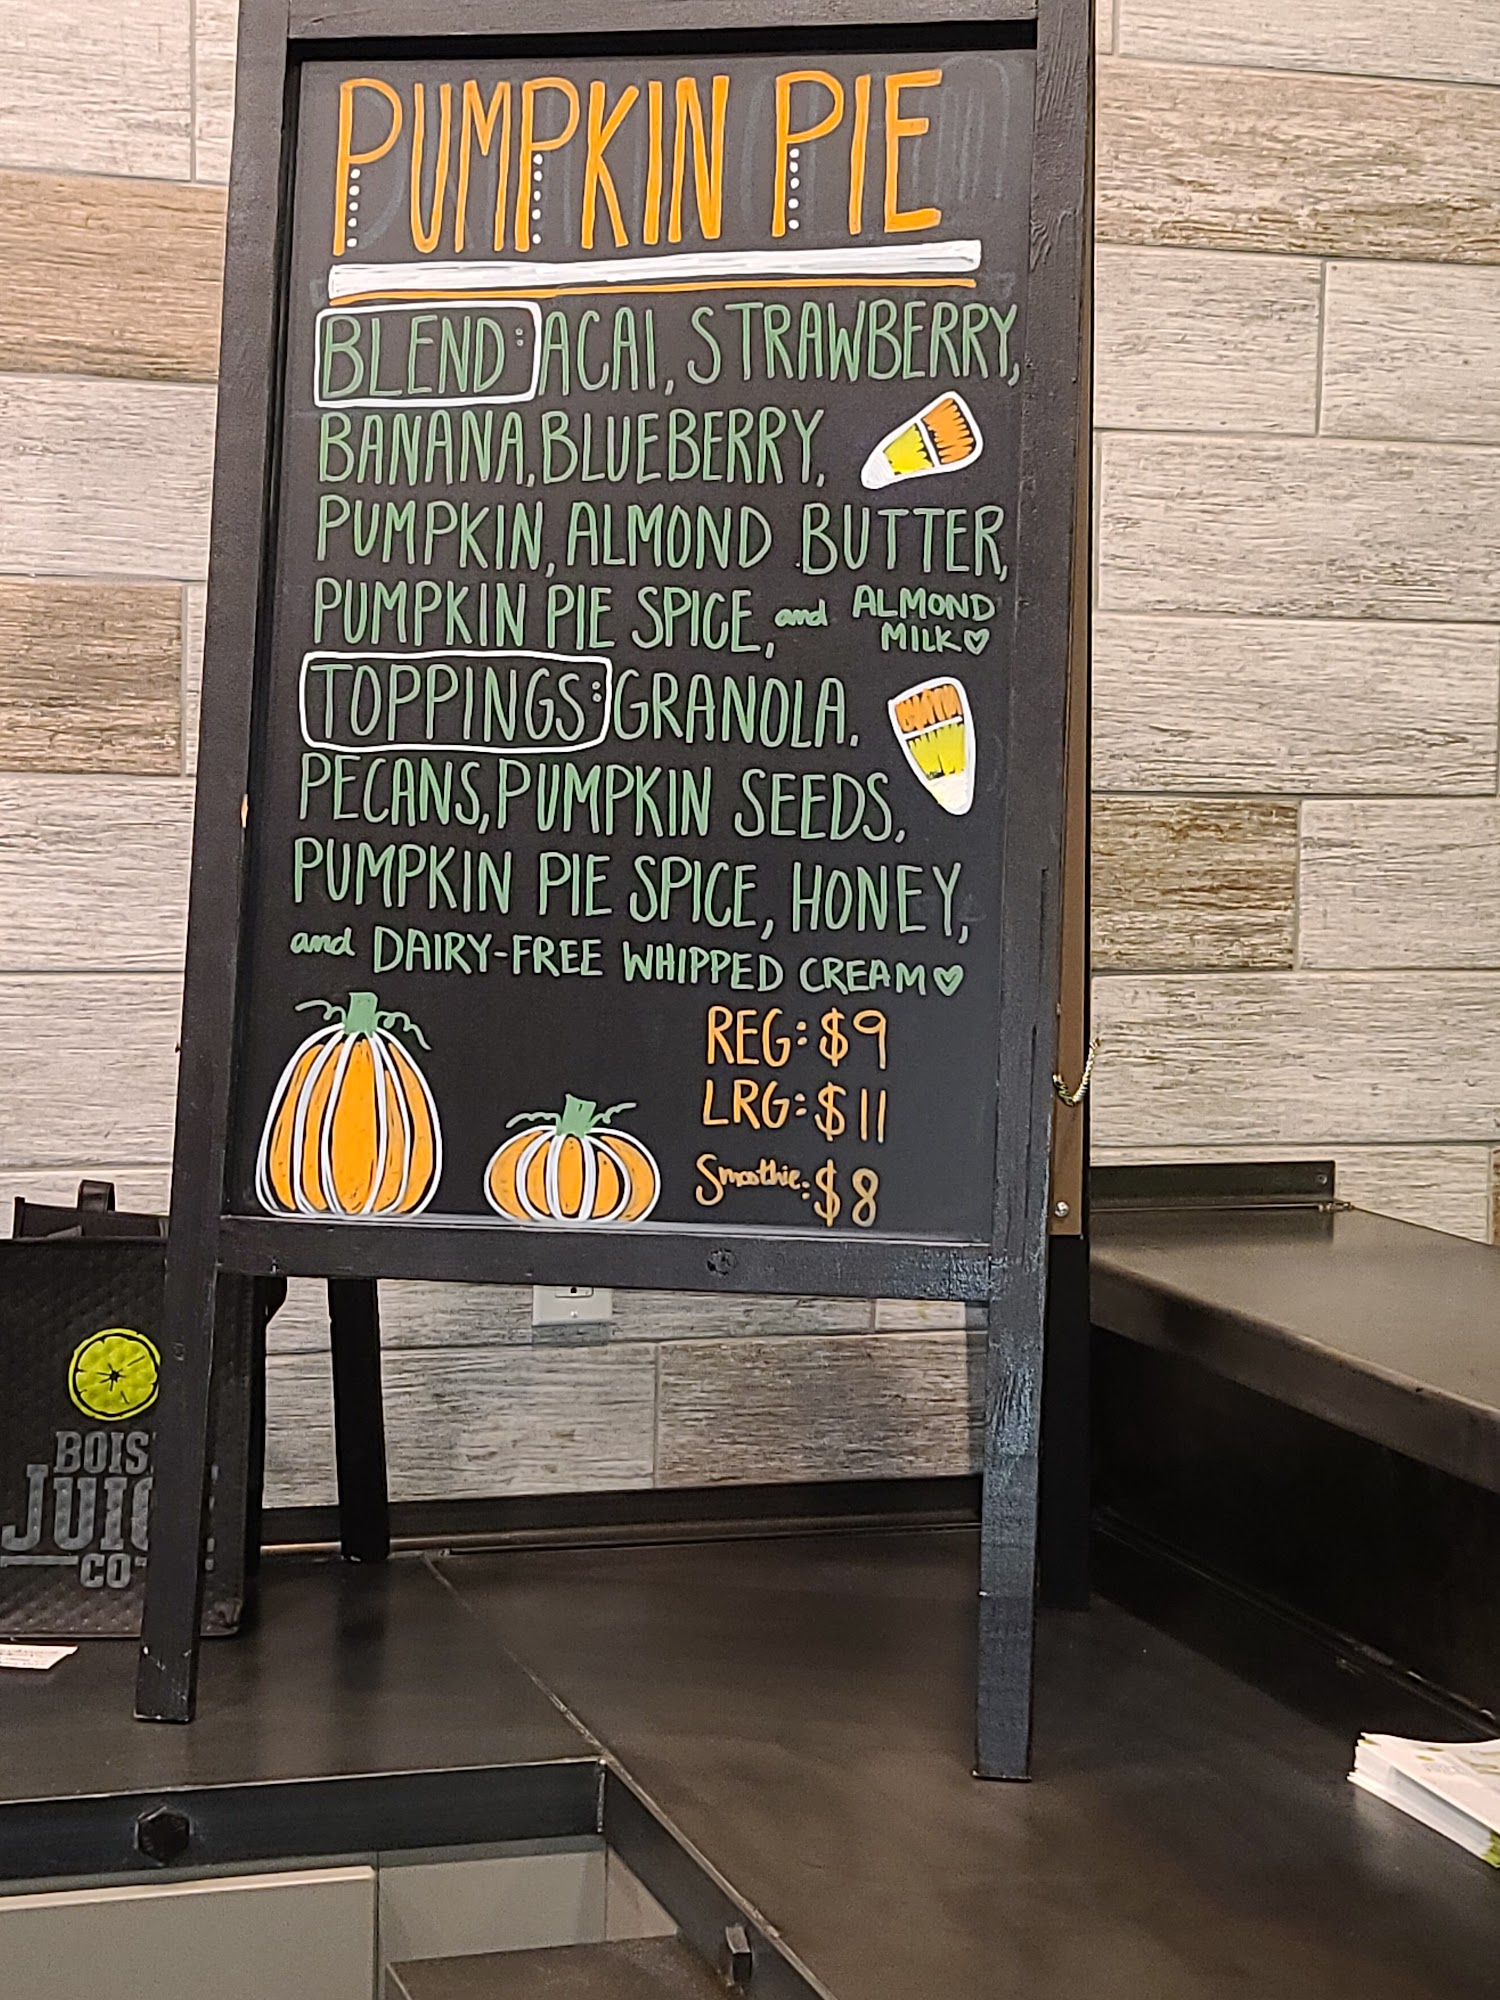 PUMPKIN PIE
BLEND: ACAI, STRAWBERRY,
BANANA, BLUEBERRY,
PUMPKIN, ALMOND BUTTER,
PUMPKIN PIE SPICE, and ALMOND
MILK♡
TOPPINGS: GRANOLA,
PECANS, PUMPKIN SEEDS,
PUMPKIN PIE SPICE, HONEY,
and DAIRY-FREE WHIPPED CREAM♡
REG: $9
LRG: $11
Smoothie: $8
BOIS
JUIC
CO